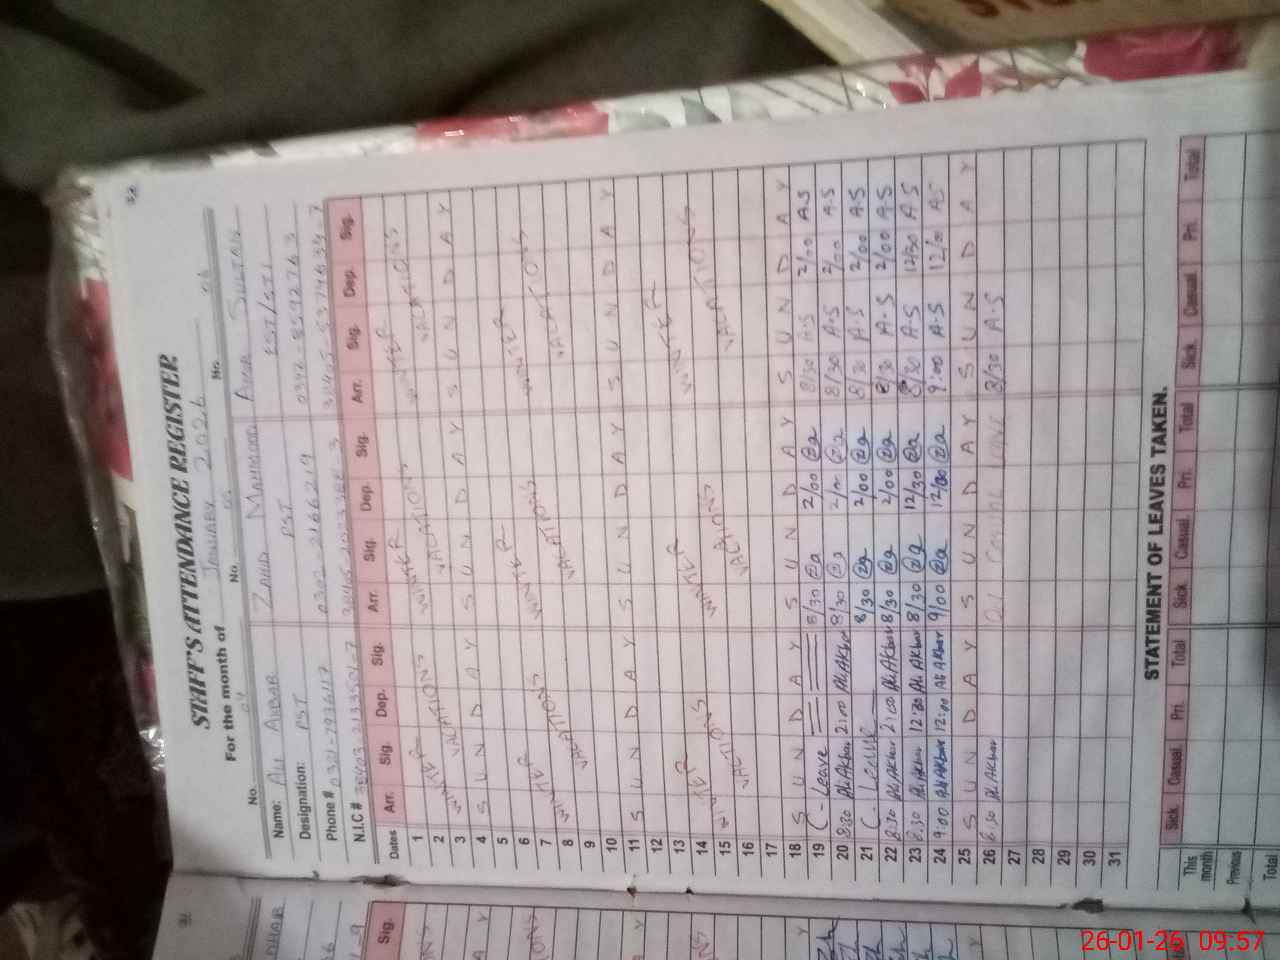 52
STAFF'S ATTENDANCE REGISTER
For the month of January 2026
No. 04 No. 05 No. 06
Name: ALI AKBAR ZAHID MAHMOOD AMAR SULTAN
Designation: PST PST EST/SST
Phone # 0301-7936117 0302-2166219 0342-8592763
N.I.C #
Dates Arr. Sig. Dep. Sig. Arr. Sig. Dep. Sig. Arr. Sig. Dep. Sig.
1 WINTER WINTER WINTER
2 VACATIONS VACATIONS VACATIONS
3
4 SUNDAY SUNDAY SUNDAY
5
6 WINTER WINTER WINTER
7 VACATIONS VACATIONS VACATIONS
8
9
10
11 SUNDAY SUNDAY SUNDAY
12
13 WINTER WINTER WINTER
14 VACATIONS VACATIONS VACATIONS
15
16
17
18 SUNDAY SUNDAY SUNDAY
19 C - Leave 8/30 2/00 8/30 A.S 2/00 A.S
20 8:30 Ali Akbar 2:00 Ali Akbar 8/30 2/00 8/30 A.S 2/00 A.S
21 C - Leave 8/30 2/00 8/30 A.S 2/00 A.S
22 8:30 Ali Akbar 2:00 Ali Akbar 8/30 2/00 8/30 A.S 2/00 A.S
23 8:30 Ali Akbar 12:30 Ali Akbar 8/30 12/30 8/30 A.S 12/30 A.S
24 9:00 Ali Akbar 12:00 Ali Akbar 9/00 12/00 9:00 A.S 12/00 A.S
25 SUNDAY SUNDAY SUNDAY
26 8:30 Ali Akbar 8/30 A.S
27
28
29
30
31
STATEMENT OF LEAVES TAKEN.
Sick Casual Pri. Total Sick Casual Pri. Total Sick Casual Pri. Total
This month
Previous
Total
Sig.
26-01-26 09:57